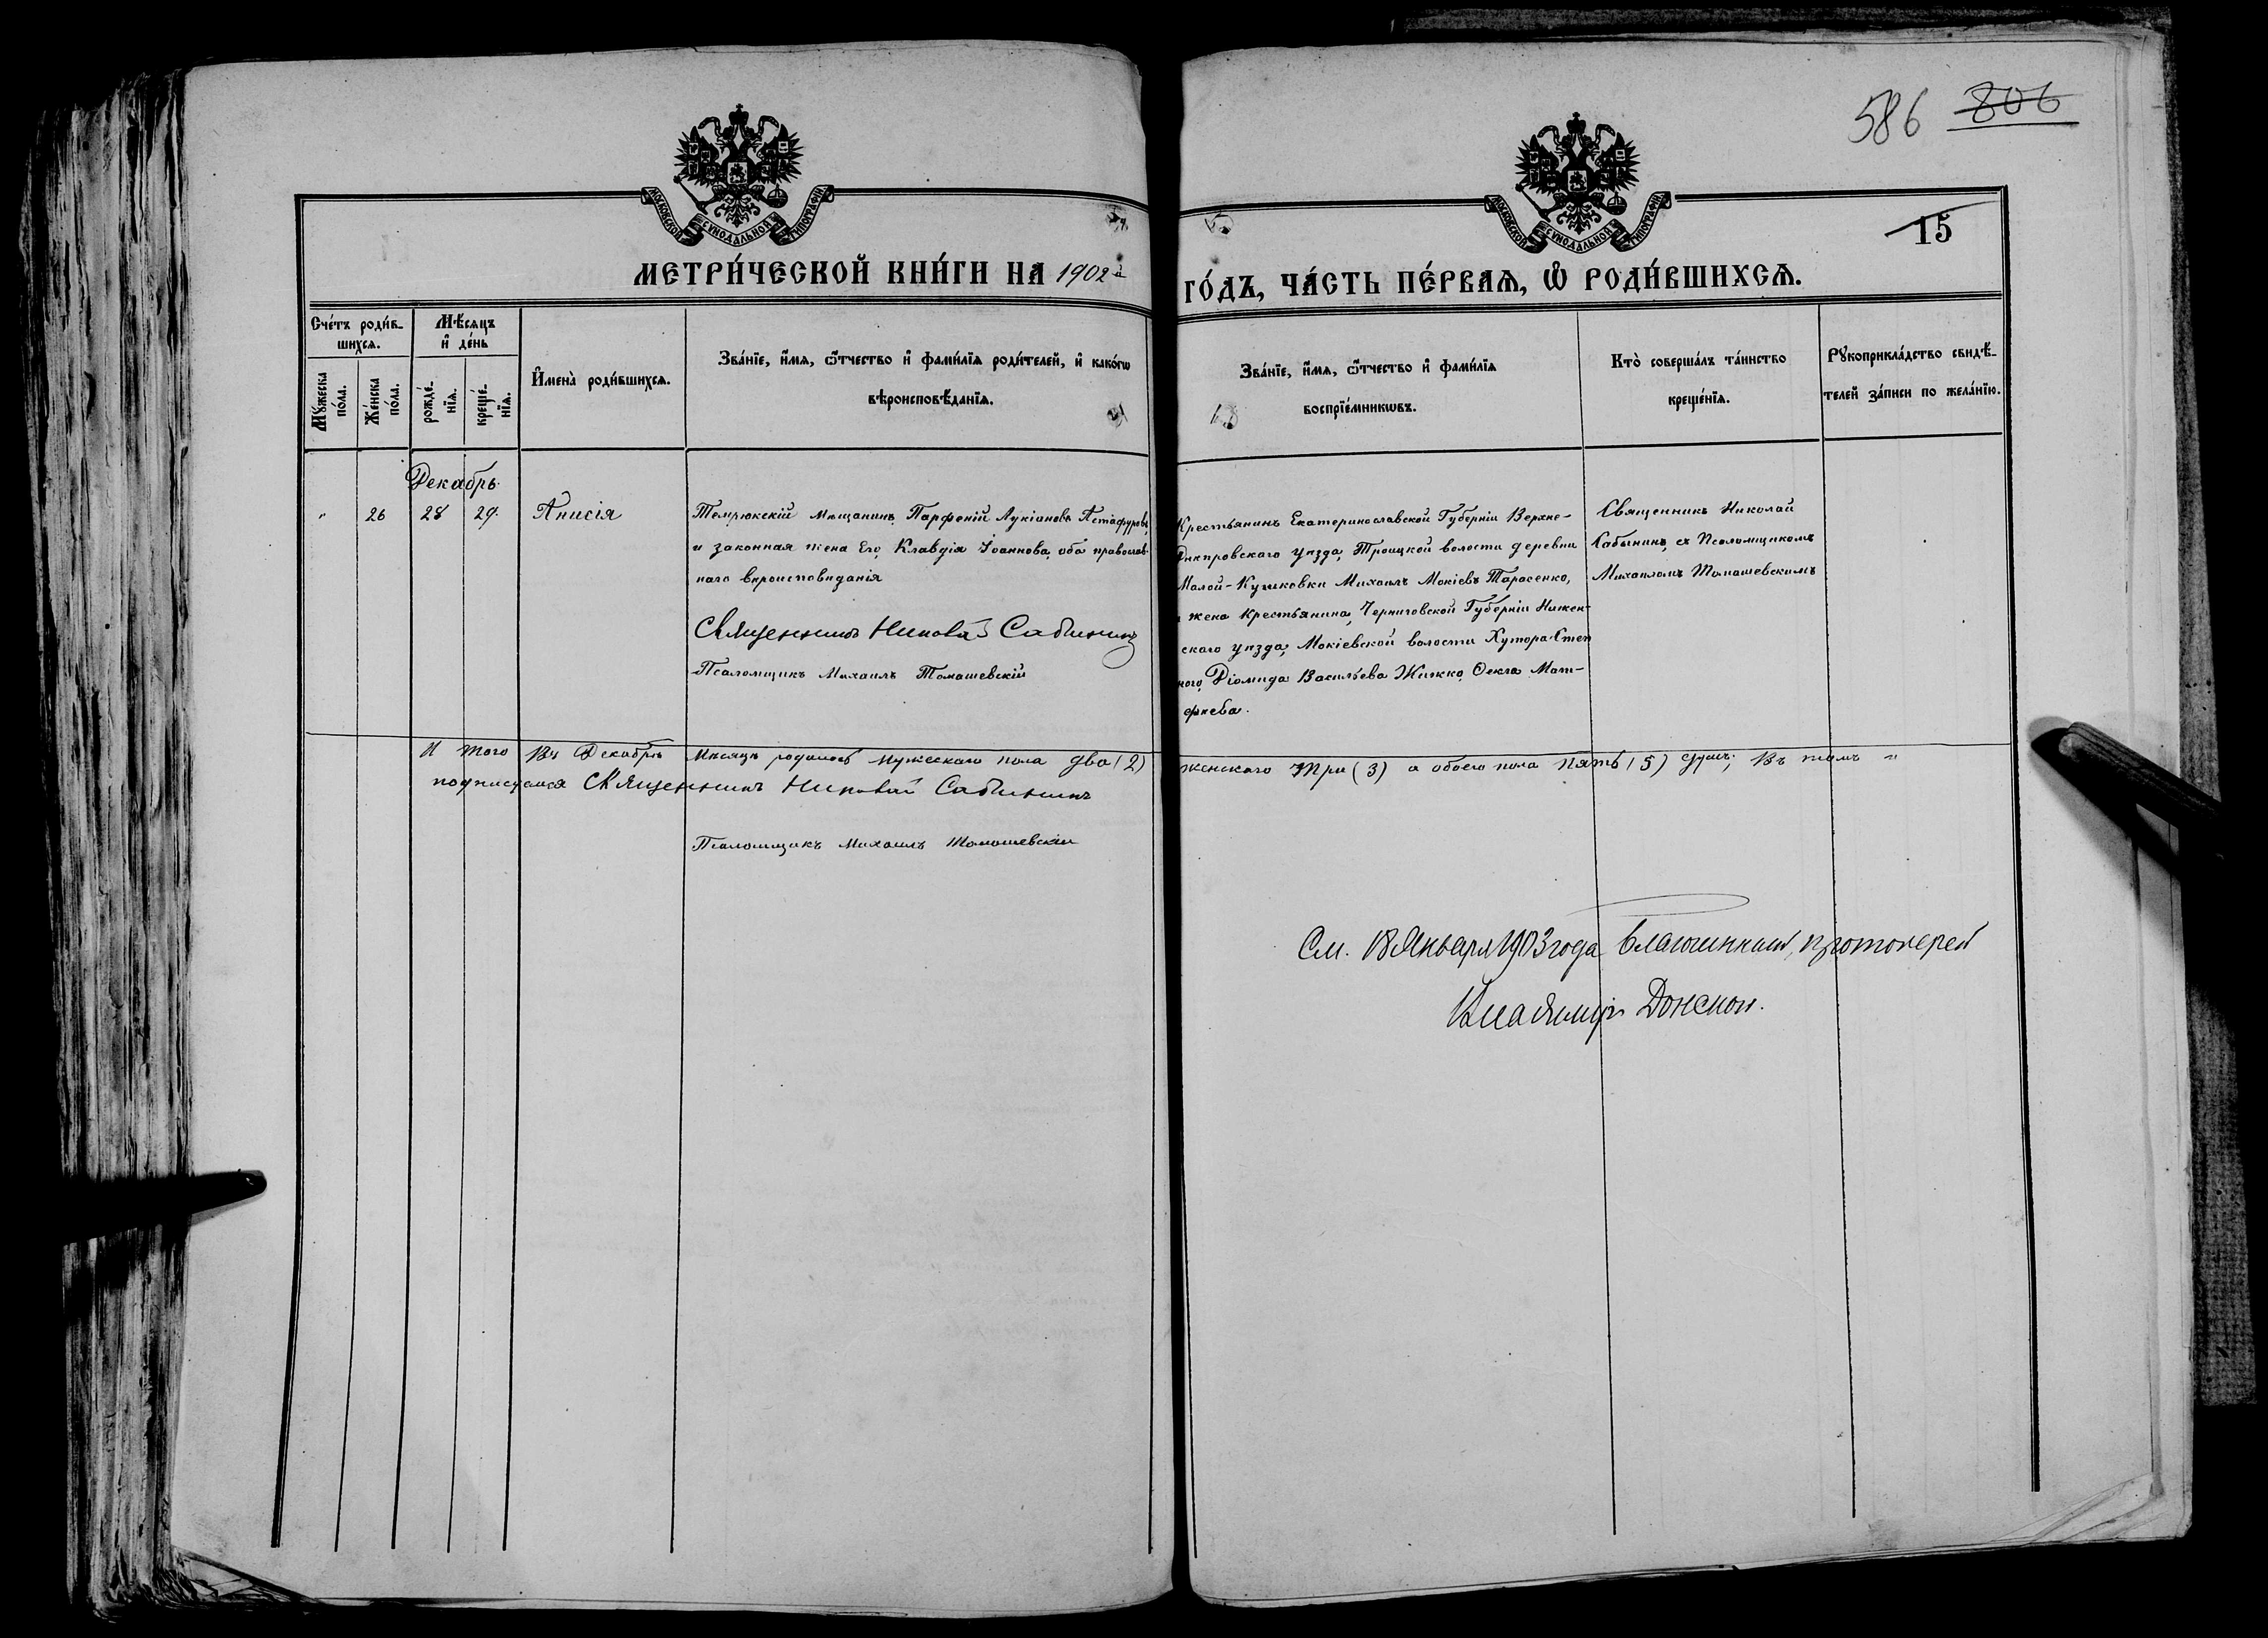 586 806
МОСКОВСКОЙ СѴНОДАЛЬНОЙ ТИПОГРАФІИ
МОСКОВСКОЙ СѴНОДАЛЬНОЙ ТИПОГРАФІИ
15
МЕТРИ́ЧЕСКОЙ КНИ́ГИ НА 1902й
ГО́ДЪ, ЧА́СТЬ ПЕ́РВАЯ, Ѡ҆ РОДИ́ВШИХСЯ.
Сче́тъ роди́в-
шихся.
Мѣ́сяцъ
и҆ де́нь
Мꙋ́жеска
по́ла.
Же́нска
по́ла.
рожде́-
нїя.
креще́-
нїя.
И҆мена̀ роди́вшихся.
Зва́нїе, и҆́мя, ѻ҆́тчество и҆ фами́лїя роди́телей, и҆ како́гѡ
вѣроисповѣ́данїя.
Зва́нїе, и҆́мя, ѻ҆́тчество и҆ фами́лїя
воспрїе́мникѡвъ.
Кто̀ соверша́лъ та́инство
креще́нїя.
Рꙋкоприкла́дство свидѣ́-
телей за́писи по жела́нїю.
Декабрь.
" 26 28 29. Анисія
Темрюкскій мѣщанинъ Парѳеній Лукіановъ Астафуровъ
и законная жена его, Клавдія Іоаннова, оба православ-
наго вѣроисповѣданія
Священникъ Николай Сабынинъ
Псаломщикъ Михаилъ Томашевскій
Крестьянинъ Екатеринославской Губерніи Верхне-
Днѣпровскаго уѣзда, Троицкой волости деревни
Малой- Михаилъ Мокіевъ Тарасенко,
и жена Крестьянина, Черниговской Губерніи Нѣжен-
скаго уѣзда, Мокіевской волости Хутора Степ
ного, Діомида Васильева Жижко, Ѳекла Мат-
фѣева.
Священникъ Николай
Сабынинъ, съ Псаломщикомъ
Михаиломъ Томашевскимъ
И того Въ Декабрѣ Мѣсяцѣ родилось мужескаго пола два (2)
женскаго три (3) а обоего пола пять (5) душъ; въ томъ и
подписуемся Священникъ Николай Сабынинъ
Псаломщикъ Михаилъ Томашевскій
См. 18 Января 1903 года Благочинный, протоіерей
Владиміръ Донской.